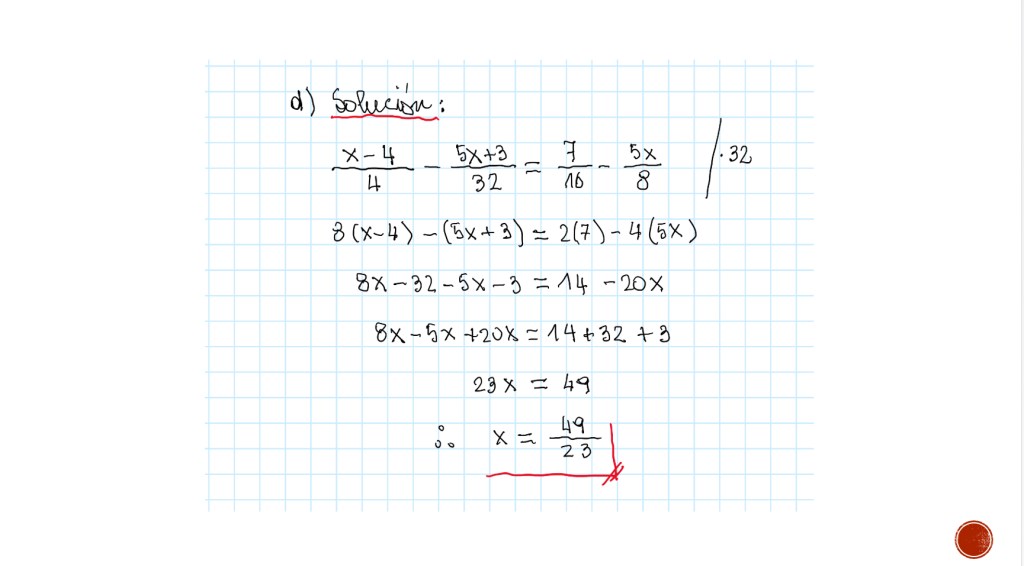 d) Solución:
x-4/4 - 5x+3/32 = 7/16 - 5x/8 /·32
8(x-4) - (5x+3) = 2(7) - 4(5x)
8x-32-5x-3 = 14 -20x
8x-5x+20x = 14+32+3
23x = 49
∴ x = 49/23